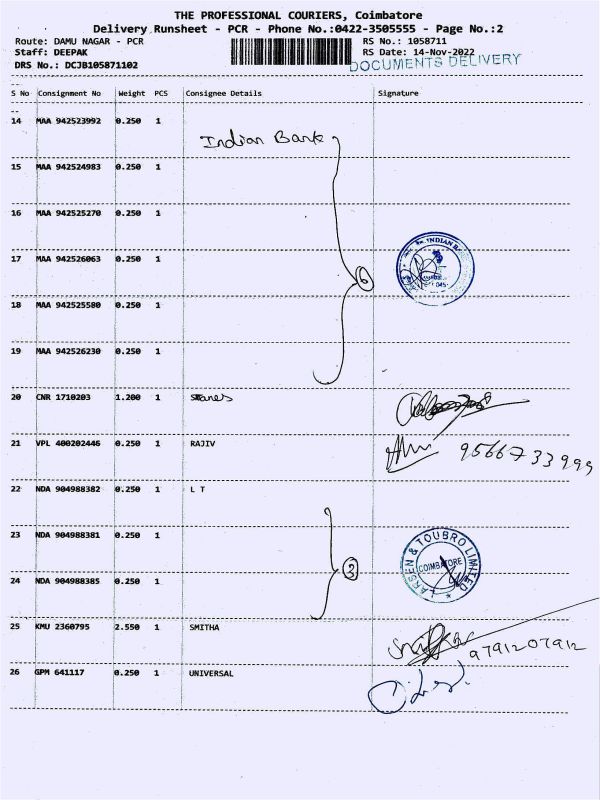 THE PROFESSIONAL COURIERS, Coimbatore
Delivery Runsheet - PCR - Phone No.:0422-3505555 - Page No.:2
Route: DAMU NAGAR - PCR
RS No.: 1058711
Staff: DEEPAK
RS Date: 14-Nov-2022
DRS No.: DCJB105871102
DOCUMENTS DELIVERY
S No Consignment No Weight PCS Consignee Details Signature
14 MAA 942523992 0.250 1
Indian Bank
15 MAA 942524983 0.250 1
16 MAA 942525270 0.250 1
INDIAN
17 MAA 942526063 0.250 1
6
18 MAA 942525580 0.250 1
19 MAA 942526230 0.250 1
20 CNR 1710203 1.200 1
21 VPL 400202446 0.250 1 RAJIV
9566733999
22 NDA 904988382 0.250 1 L T
23 NDA 904988381 0.250 1
3
LARSEN & TOUBRO LIMITED
COIMBATORE
24 NDA 904988385 0.250 1
25 KMU 2360795 2.550 1 SMITHA
9791207912
26 GPM 641117 0.250 1 UNIVERSAL